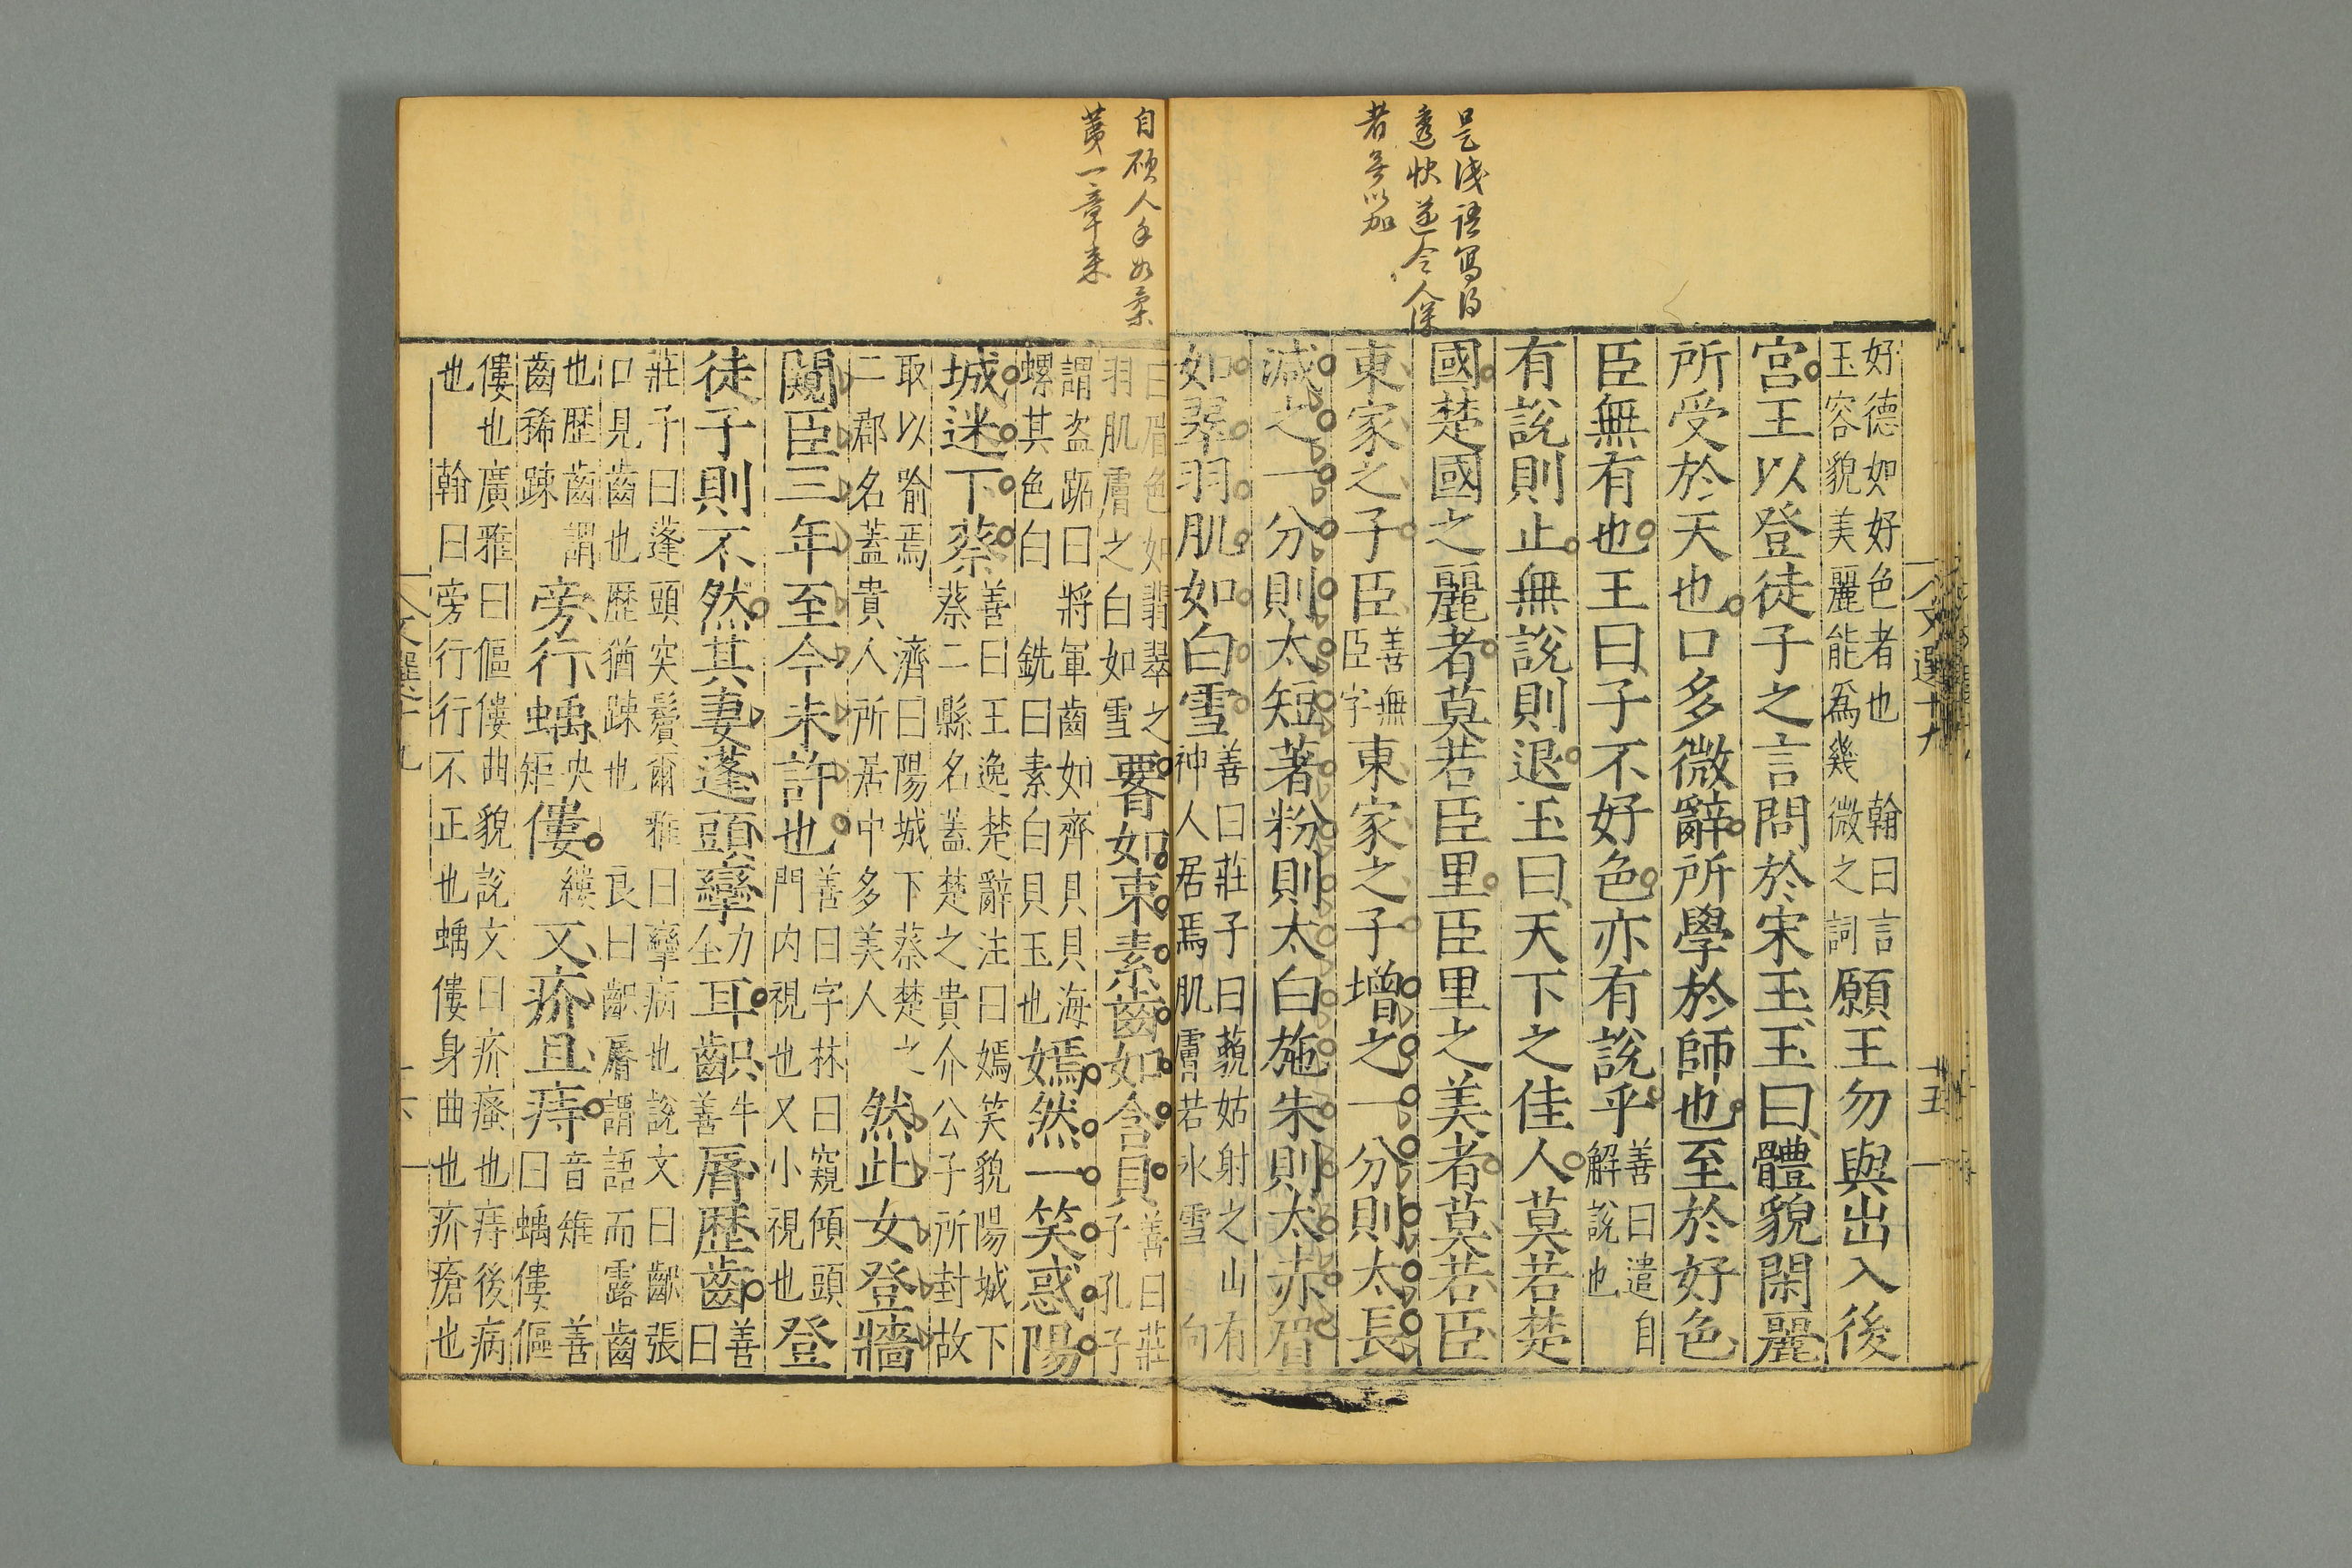 是淺語寫得
透快遂令人保
者無以加
好德如好色者也　翰曰言
玉容貌美麗能為幾微之詞
願王勿與出入後
宮王以登徒子之言問於宋玉玉曰體貌閑麗
所受於天也口多微辭所學於師也至於好色
臣無有也王曰子不好色亦有說乎
善曰遣自
解說也
有說則止無說則退玉曰天下之佳人莫若楚
國楚國之麗者莫若臣里臣里之美者莫若臣
東家之子臣
善無
臣字
東家之子增之一分則太長
減之一分則太短著粉則太白施朱則太赤眉
如翠羽肌如白雪
善曰莊子曰藐姑射之山有
神人居焉肌膚若氷雪　向
文選十九
十五
自碩人手如柔
荑一章來
曰眉色如翡翠之
羽肌膚之白如雪
要如束素齒如含貝
善曰莊
子孔子
謂盗跖曰將軍齒如齊貝貝海
螺其色白　銑曰素白貝玉也
嫣然一笑惑陽
城迷下蔡
善曰王逸楚辭注曰嫣笑貌陽城下
蔡二縣名蓋楚之貴介公子所封故
取以喻焉　濟曰陽城下蔡楚之
二郡名蓋貴人所居中多美人
然此女登牆
闚臣三年至今未許也
善曰字林曰窺傾頭
門内視也又小視也
登
徒子則不然其妻蓬頭攣
力
全
耳齞
牛
善
脣歷齒
善
曰
莊子曰蓬頭突鬢爾雅曰攣病也說文曰齞張
口見齒也歷猶踈也　良曰齞脣謂語而露齒
也歷齒謂
齒稀踈
旁行踽
央
矩
僂
縷
又疥且痔
音雉　善
曰踽僂傴
僂也廣雅曰傴僂曲貌說文曰疥瘙也痔後病
也　翰曰旁行行不正也踽僂身曲也疥瘡也
文選十九
十六